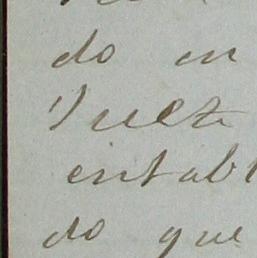 do en
Juez
entabl
do que